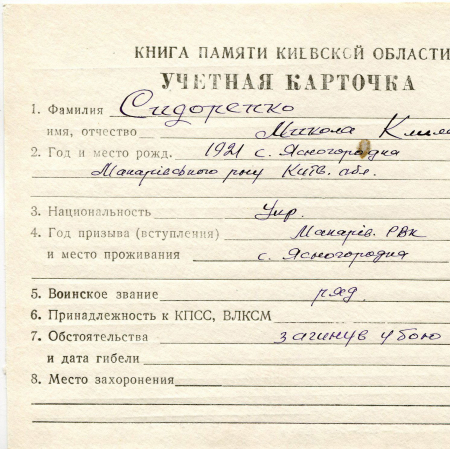 КНИГА ПАМЯТИ КИЕВСКОЙ ОБЛАСТИ
УЧЕТНАЯ КАРТОЧКА
1. Фамилия Сидоренко
имя, отчество Микола
2. Год и место рожд. 1921 с. Ясногородка
Макарівського р-ну Київ. обл.
3. Национальность Укр.
4. Год призыва (вступления) Макарів. РВК
и место проживания с. Ясногородка
5. Воинское звание ряд.
6. Принадлежность к КПСС, ВЛКСМ
7. Обстоятельства загинув у бою
и дата гибели
8. Место захоронения